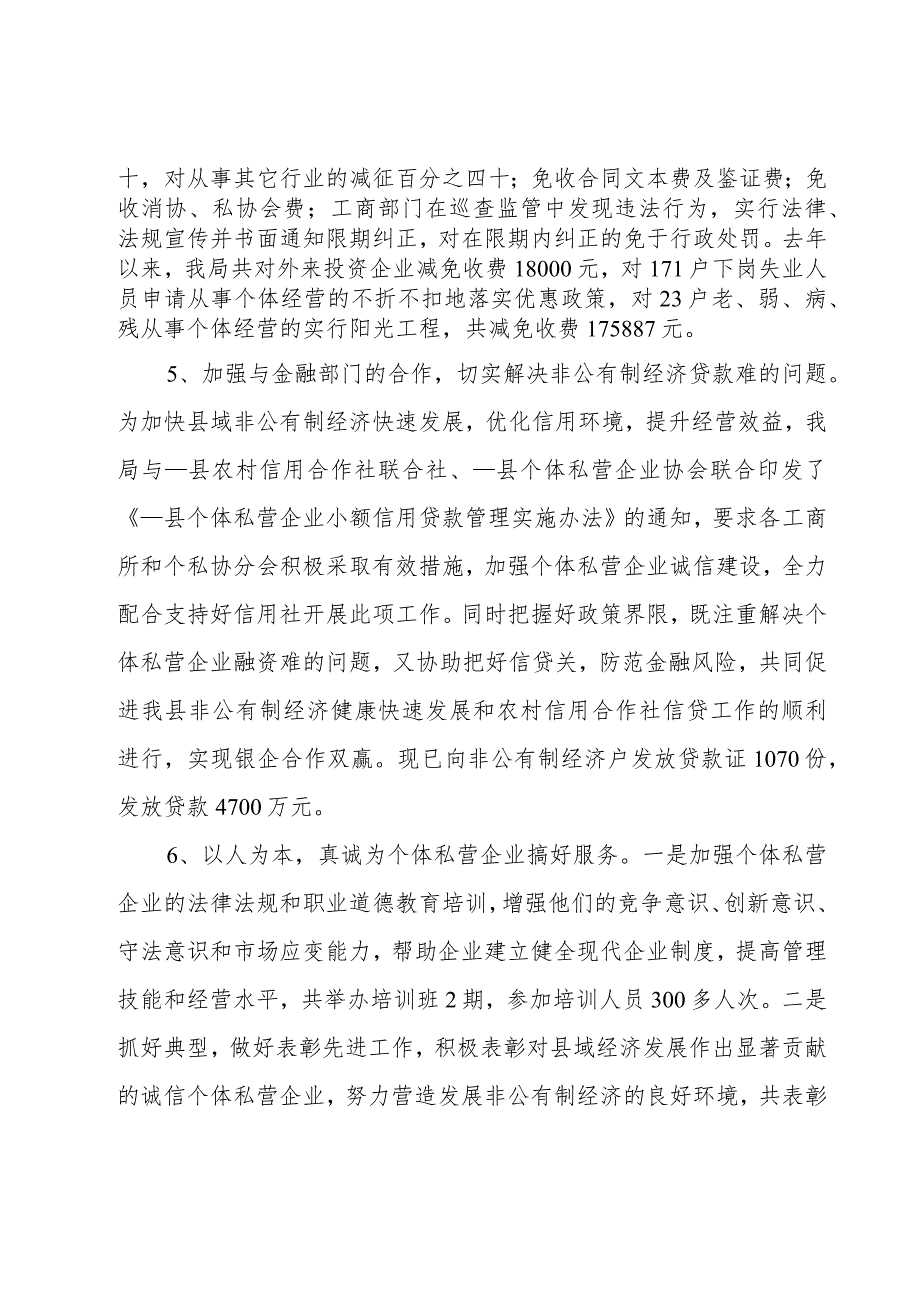 十，对从事其它行业的减征百分之四十；免收合同文本费及鉴证费；免
收消协、私协会费；工商部门在巡查监管中发现违法行为，实行法律、
法规宣传并书面通知限期纠正，对在限期内纠正的免于行政处罚。去年
以来，我局共对外来投资企业减免收费 18000 元，对 171 户下岗失业人
员申请从事个体经营的不折不扣地落实优惠政策，对 23 户老、弱、病、
残从事个体经营的实行阳光工程，共减免收费 175887 元。
5、加强与金融部门的合作，切实解决非公有制经济贷款难的问题。
为加快县域非公有制经济快速发展，优化信用环境，提升经营效益，我
局与—县农村信用合作社联合社、—县个体私营企业协会联合印发了
《—县个体私营企业小额信用贷款管理实施办法》的通知，要求各工商
所和个私协分会积极采取有效措施，加强个体私营企业诚信建设，全力
配合支持好信用社开展此项工作。同时把握好政策界限，既注重解决个
体私营企业融资难的问题，又协助把好信贷关，防范金融风险，共同促
进我县非公有制经济健康快速发展和农村信用合作社信贷工作的顺利
进行，实现银企合作双赢。现已向非公有制经济户发放贷款证 1070 份，
发放贷款 4700 万元。
6、以人为本，真诚为个体私营企业搞好服务。一是加强个体私营
企业的法律法规和职业道德教育培训，增强他们的竞争意识、创新意识、
守法意识和市场应变能力，帮助企业建立健全现代企业制度，提高管理
技能和经营水平，共举办培训班 2 期，参加培训人员 300 多人次。二是
抓好典型，做好表彰先进工作，积极表彰对县域经济发展作出显著贡献
的诚信个体私营企业，努力营造发展非公有制经济的良好环境，共表彰